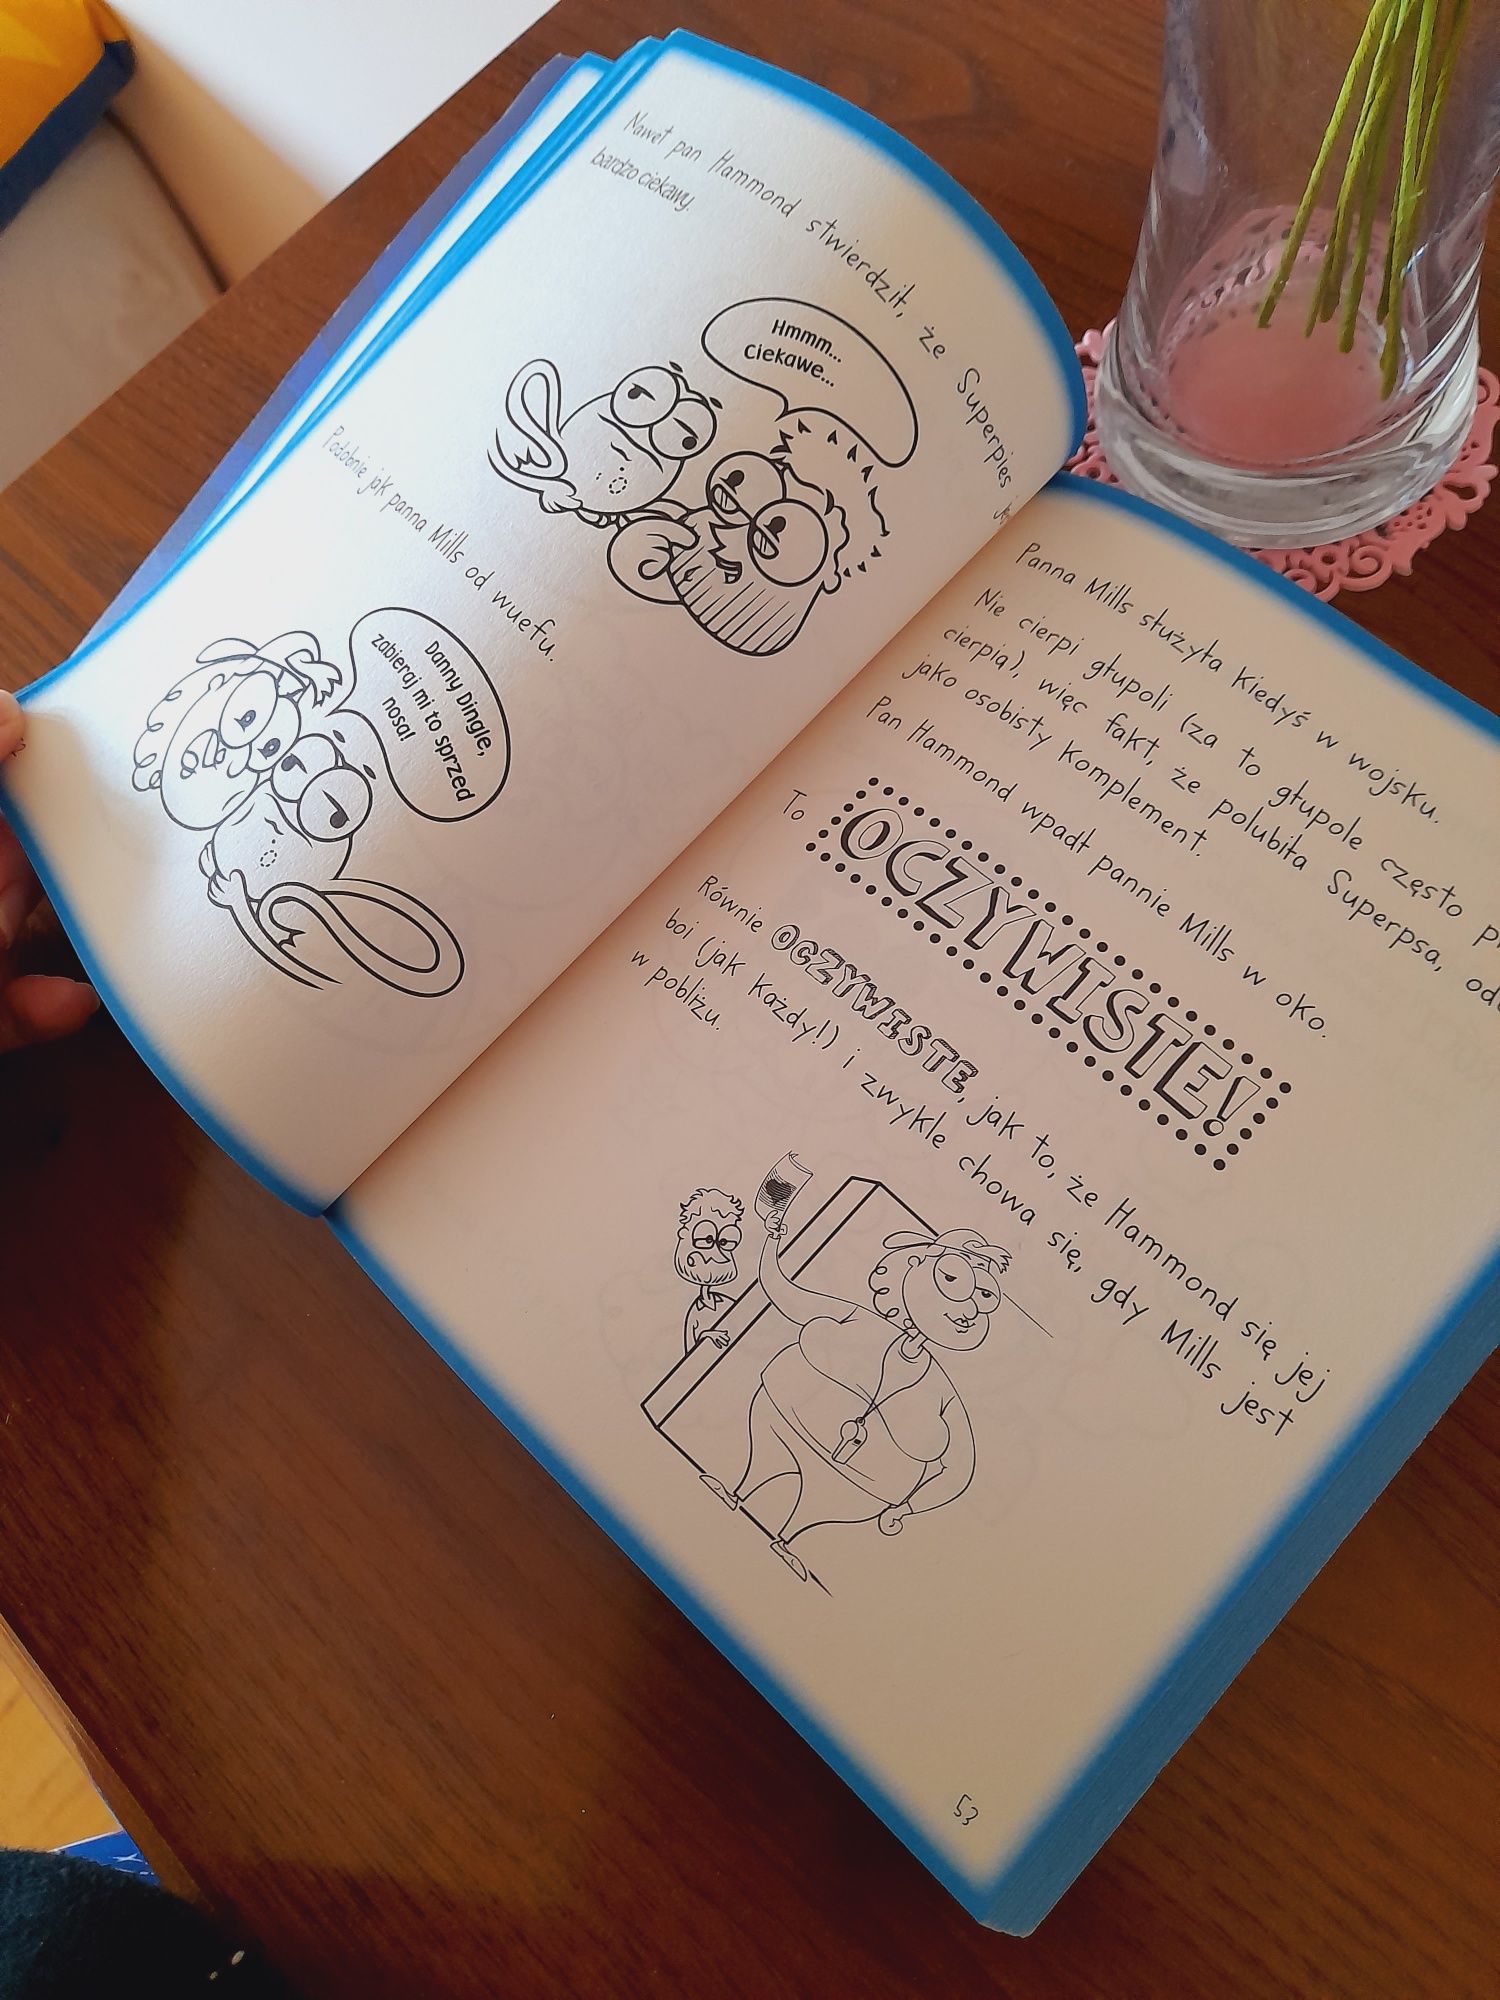 Nawet pan Hammond stwierdził, że Superpies
bardzo ciekawy.
Hmmm...
Ciekawe...
Podobnie jak panna Mills od wuefu.
Danny Dingle,
zabieraj mi to sprzed
nosa!
Panna Mills służyła kiedyś w wojsku.
Nie cierpi głupoli (za to głupole często
cierpią), więc fakt, że polubiła Superpsa,
jako osobisty komplement.
Pan Hammond wpadł pannie Mills w oko.
To OCZYWISTE!
Równie OCZYWISTE, jak to, że Hammond się jej
boi (jak każdy!) i zwykle chowa się, gdy Mills jest
w pobliżu.
53